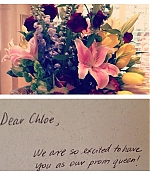 Dear Chloe,
We are so excited to have
you as our prom queen!